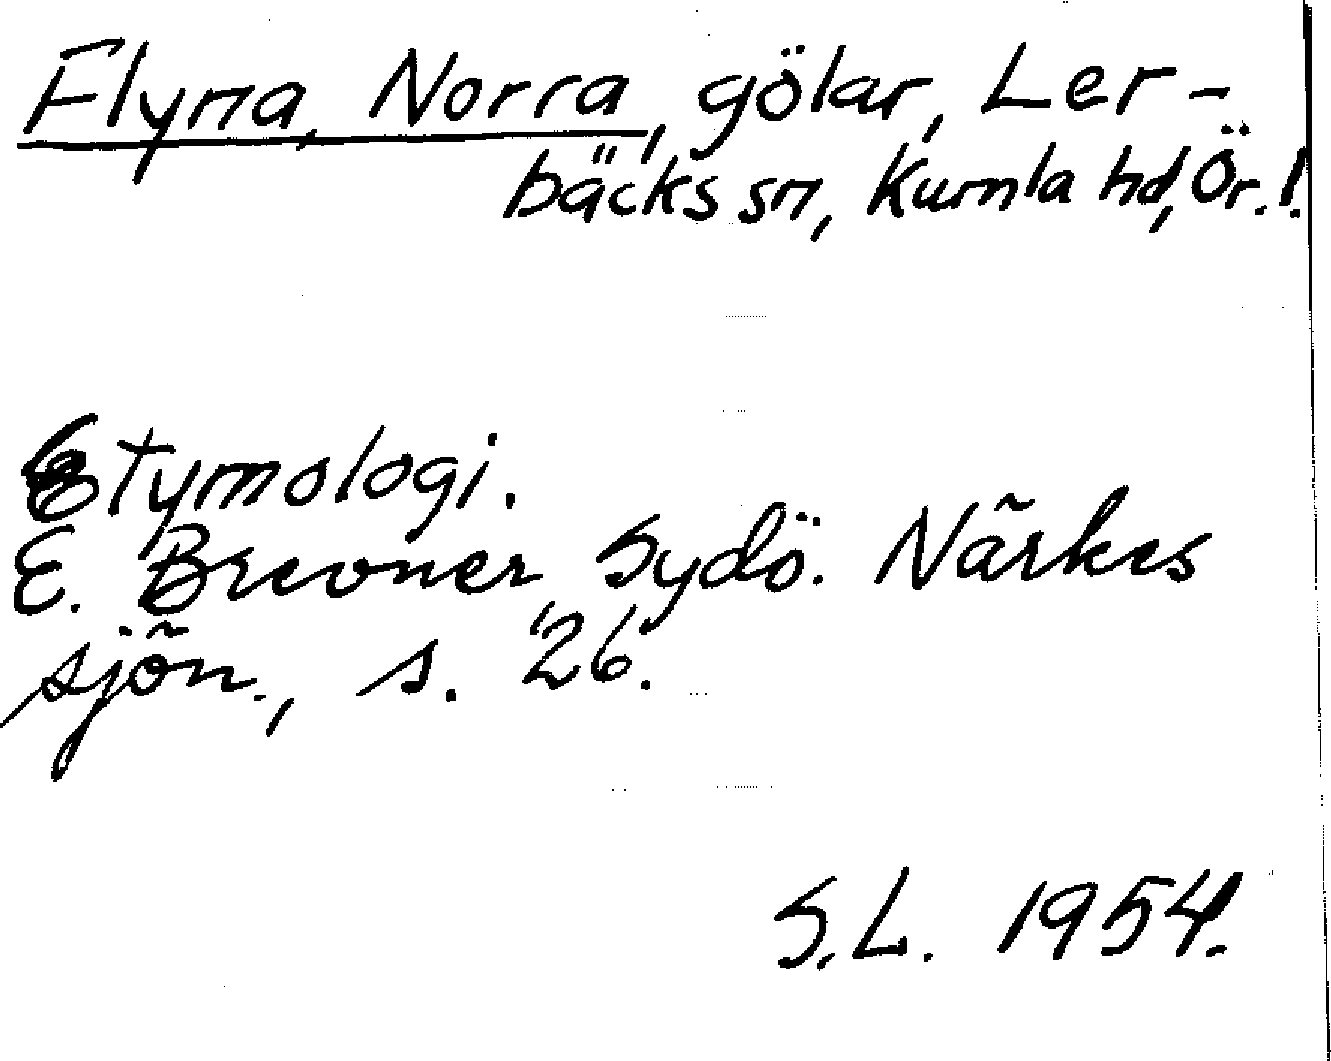 Flyna, Norra, gölar, Ler-
bäcks sn, Kumla hd, Ör. l.
Etymologi.
E. Brevner Sydö. Närkes
sjön., s. 26.
S.L. 1954.